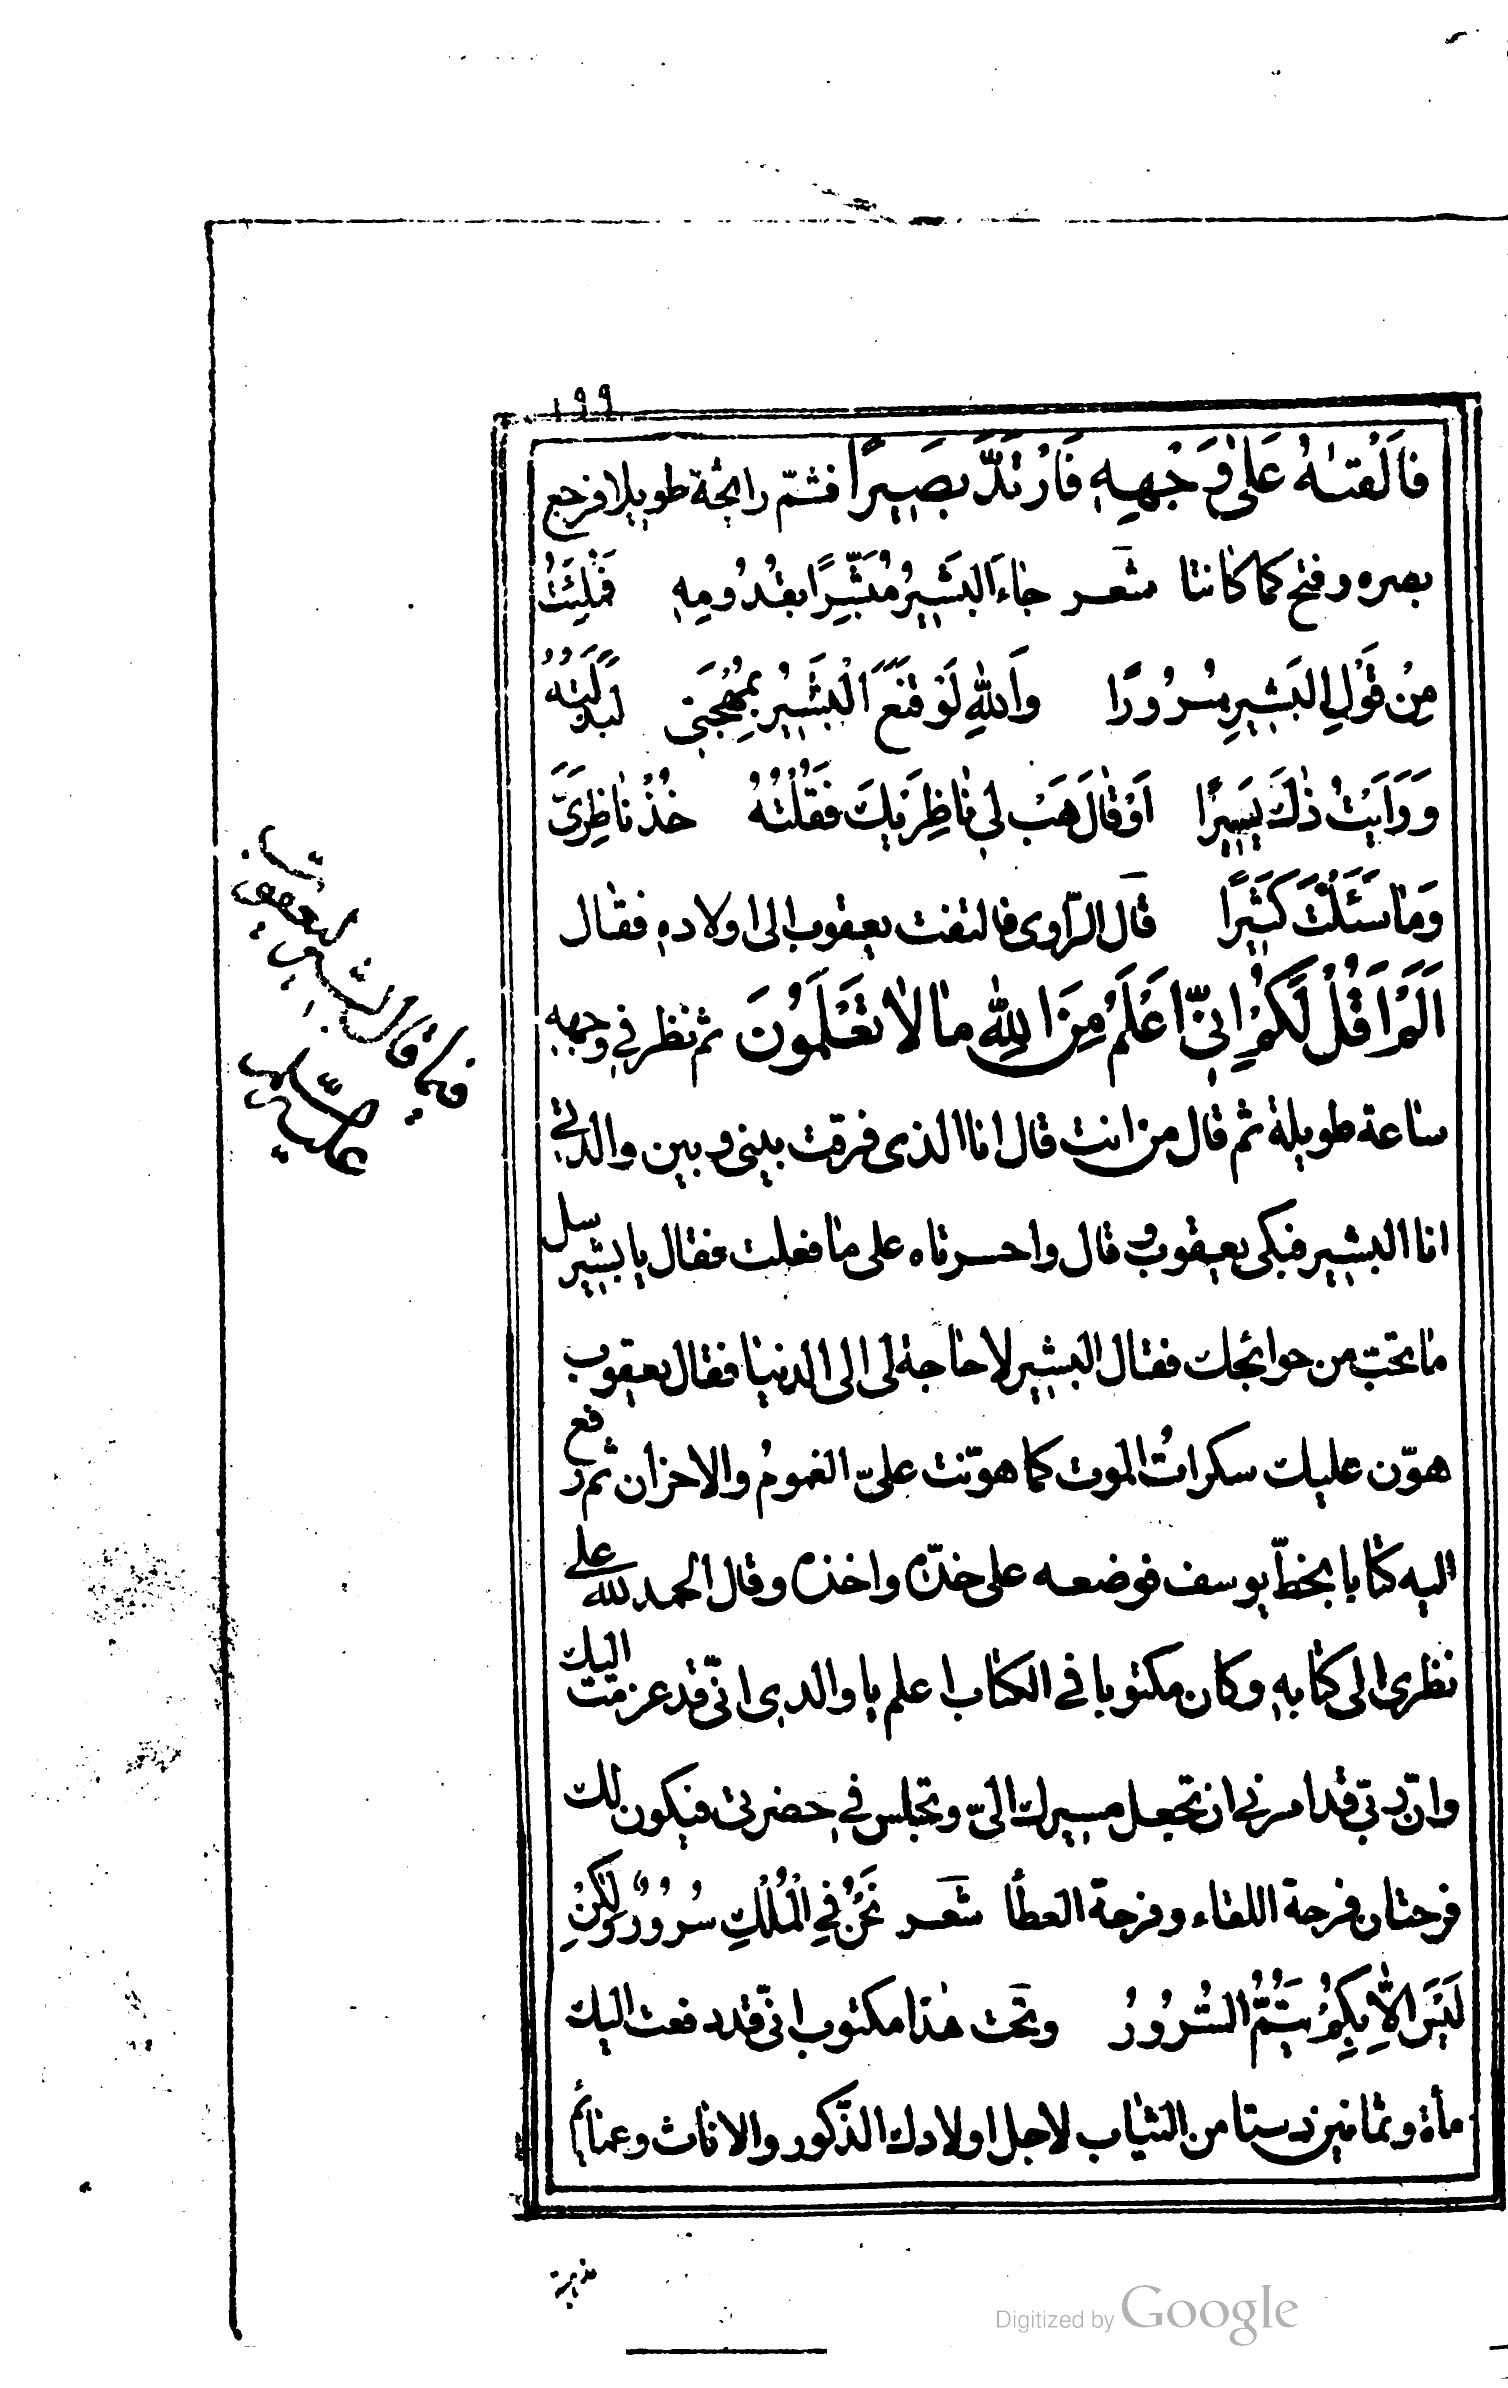 ١٩٩
فَاَلْقٰىهُ عَلٰى وَجْهِهٖ فَارْتَدَّ بَصِيرًا فشمّ رايحة طويلا فرجع
بصره وفتح كما كانتا شعر جَاءَ الْبَشِيرُ مُبَشِّرًا بِقُدُومِهٖ فَمُلِئْتُ
مِنْ قَوْلِ الْبَشِيرِ سُرُورًا وَاللّٰهِ لَوْ قَنَعَ الْبَشِيرُ بِمُهْجَتِى لَبَذَلْتُهُ
وَرَاَيْتُ ذٰلِكَ يَسِيرًا اَوْ قَالَ هَبْ لِى نَاظِرَيْكَ فَقُلْتُ لَهُ خُذْ نَاظِرَىَّ
وَمَا سَئَلْتَ كَثِيرًا قال الرّاوى فالتفت يعقوب الى اولاده فقال
اَلَمْ اَقُلْ لَكُمْ اِنِّى اَعْلَمُ مِنَ اللّٰهِ مَا لَا تَعْلَمُونَ ثم نظر فى وجهه
ساعة طويلة ثم قال من انت قال انا الذى فرقت بينى وبين والدتى
انا البشير فبكى يعقوب وقال واحسرتاه على ما فعلت فقال يا بشير سل
ما تحب من حوائجك فقال البشير لا حاجة لى الى الدنيا فقال يعقوب
هوّن عليك سكرات الموت كما هوّنت علىّ الغموم والاحزان ثم رفع
اليه كتابا بخطّ يوسف فوضعه على خدّه واخذه وقال الحمد لله على
نظرى الى كتابه وكان مكتوبا فى الكتاب اعلم يا والدى انّى قد عزمت اليك
وانّ ربّى قد امرنى ان تجعل مسيرك الىّ وتجلس فى حضرتى فيكون لك
فرحتان فرحة اللقاء وفرحة العطا شعر نَحْنُ فِى الْمُلْكِ سُرُورٌ وَلٰكِنْ
لَيْسَ اِلَّا بِكُمْ يَتِمُّ السُّرُورُ وتحت هذا مكتوب انّى قد دفعت اليك
مأة وثمانين دستا من الثياب لاجل اولادك الذّكور والاناث وعمائم
فيما قال البشير ليعقوب
عليه السّلام